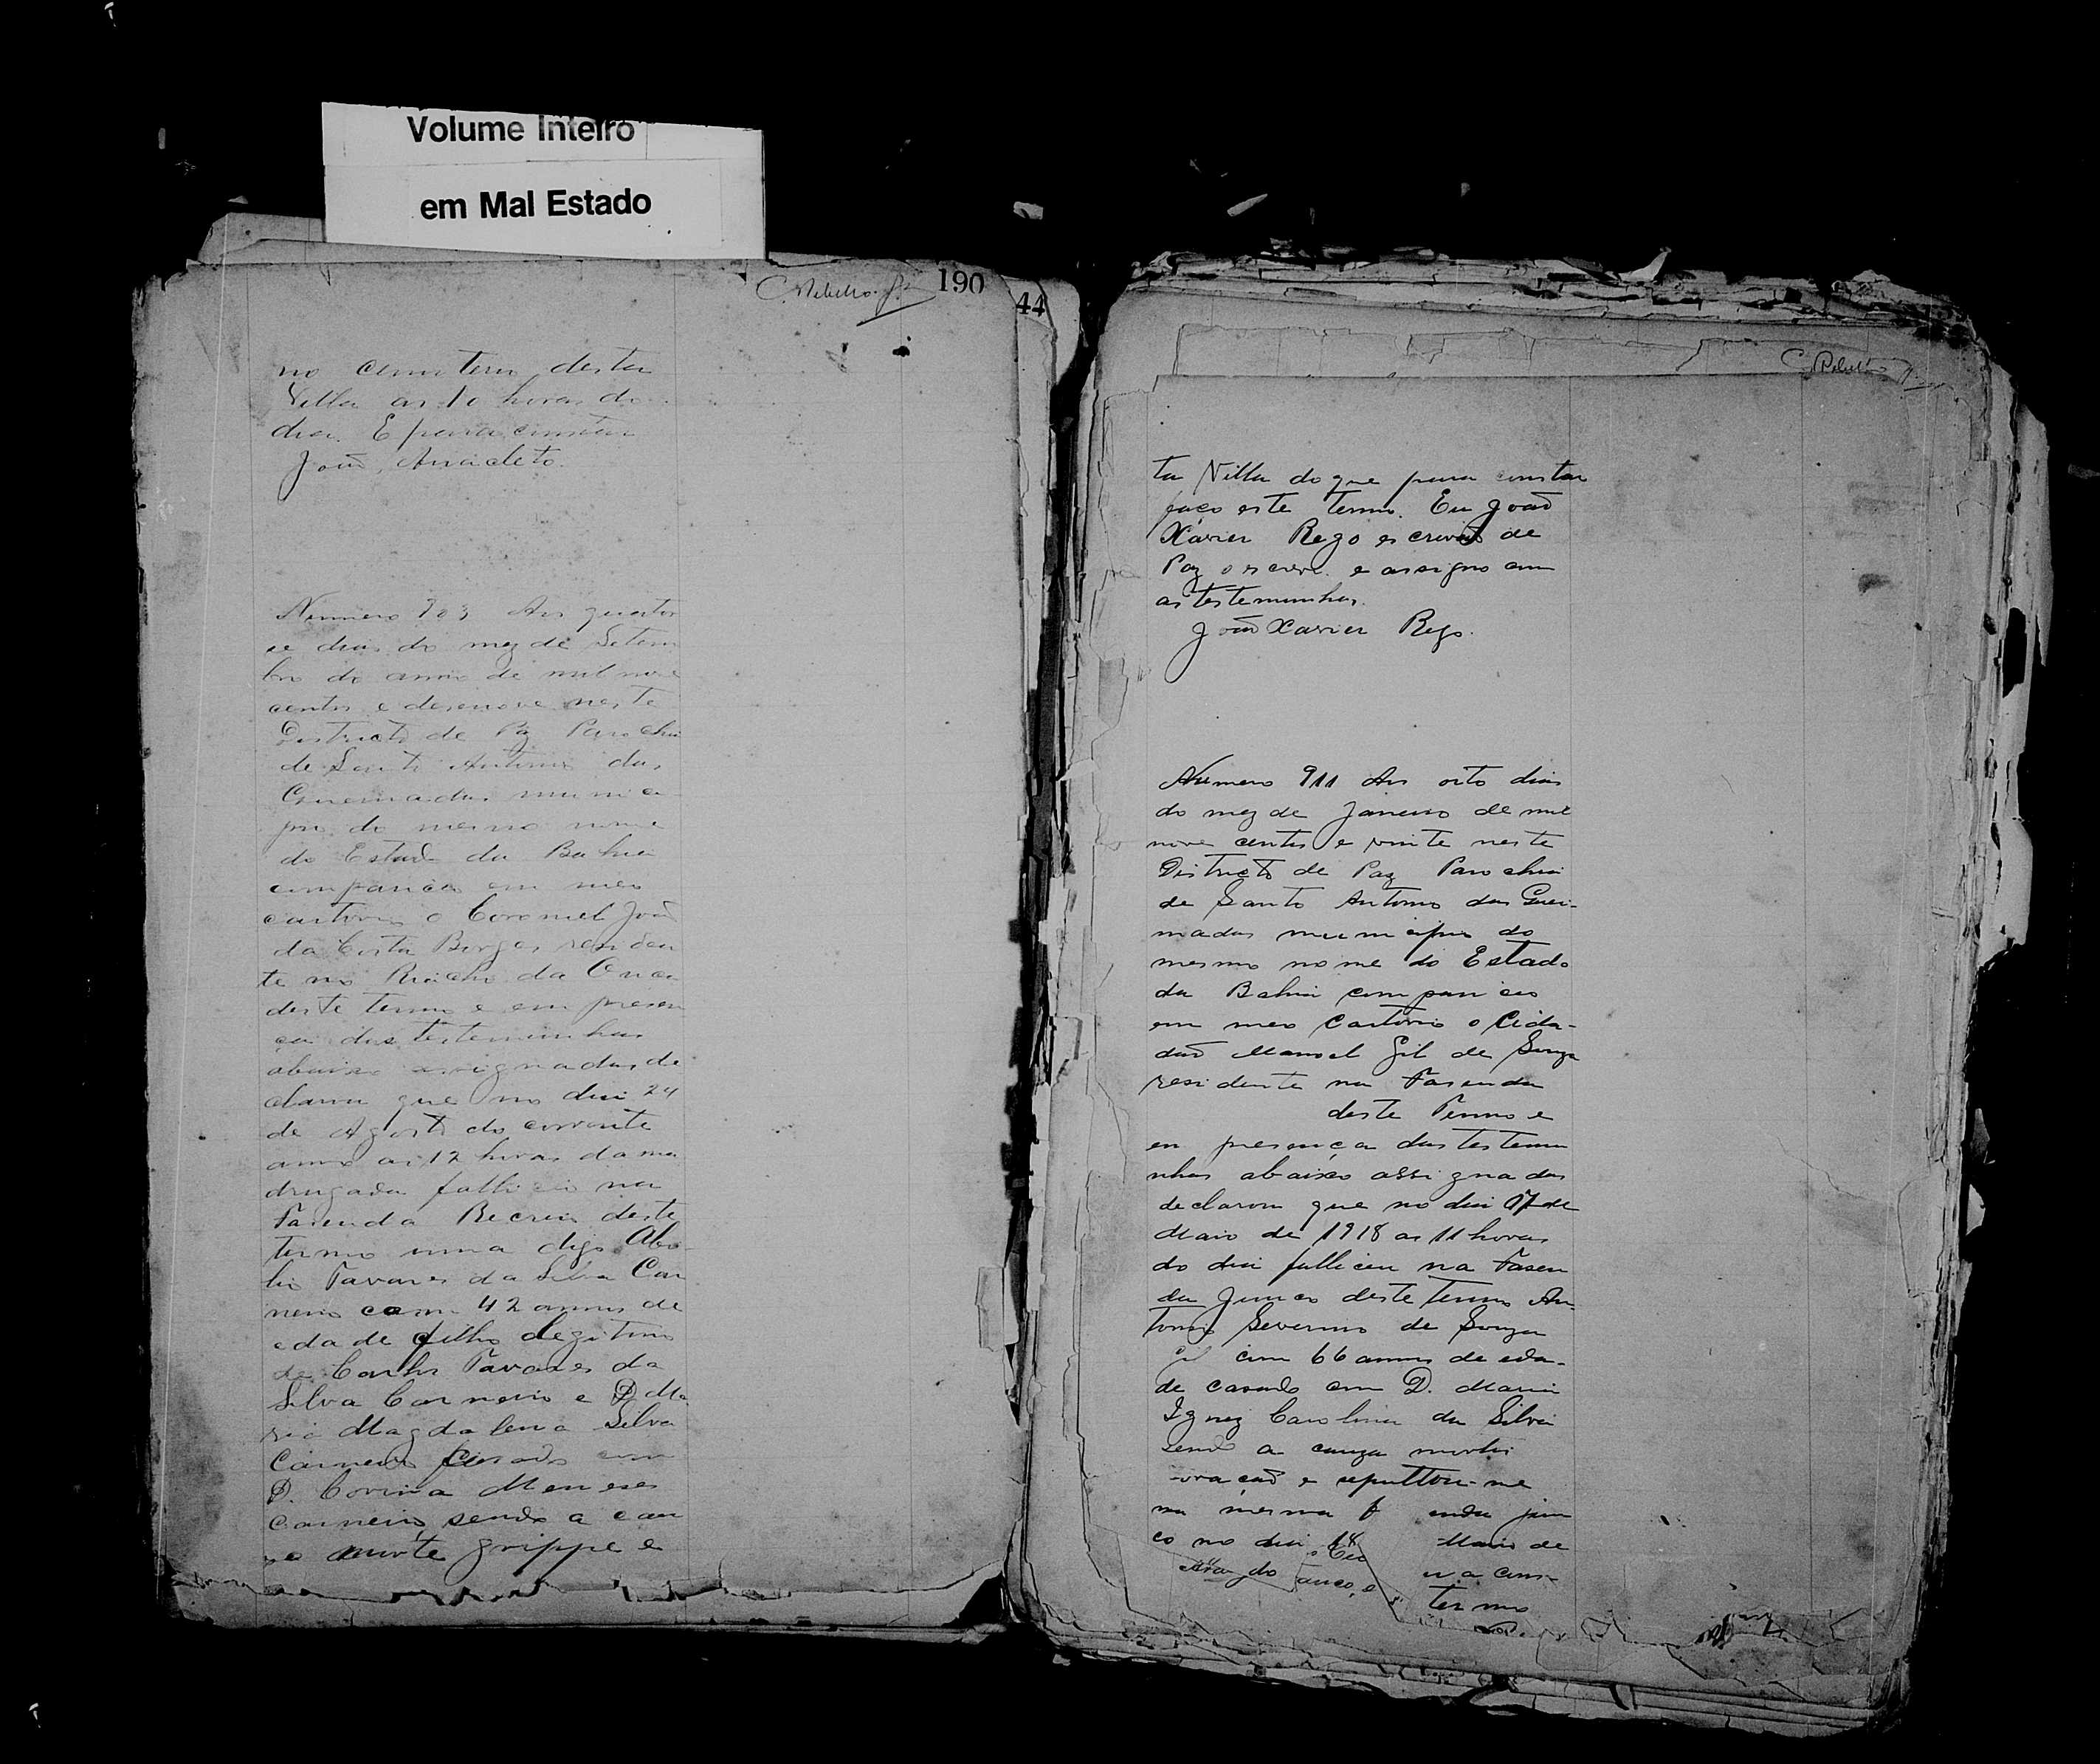 Volume Inteiro
em Mal Estado
190
44
no cemiterio desta
Villa as 10 horas do
dia. E para constar
João Anacleto.
Numero 903 Aos quator
ze dias do mez de Setem
bro do anno de mil nove
centos e desenove neste
Districto de Paz Parochia
de Santo Antonio das
Queimadas munici
pio do mesmo nome
do Estado da Bahia
compareceo em meo
cartorio o Coronel João
da Costa Borges residen
te no Riacho da Onca
deste termo e em presen
ça das testemunhas
abaixo assignadas de
clarou que no dia 24
de Agosto do corrente
anno as 12 horas da ma
drugada falleceo na
Fasenda Recreio deste
termo uma digo
Tavares da Silva Car
neiro com 42 annos de
edade filho legitimo
de Carlos Tavares da
Silva Carneiro e D. Ma
ria Magdalena Silva
Carneiro casado com
D. Corina Meneses
Carneiro sendo a cau
morte grippe e
ta Villa do que para constar
faço este termo. Eu João
Xavier Rego escrivão de
Paz o escrevi e assigno com
as testemunhas.
João Xavier Rego.
Numero 911 Aos oito dias
do mez de Janeiro de mil
nove centos e vinte neste
Districto de Paz Parochia
de Santo Antonio das Quei-
madas municipio do
mesmo nome do Estado
da Bahia compareceo
em meo Cartorio o Cida-
dão Manoel Gil de Souza
residente na Fasenda
deste Termo e
em presença das testemu
nhas abaixo assignadas
declarou que no dia 17 de
Maio de 1918 as 11 horas
do dia falleceu na Fasen
da Junco deste Termo An-
tonio Severino de Souza
Gil com 66 annos de eda-
de casado com D. Maria
Ignez Carolina da Silva
sendo a cauza mortis
e sepultou-se
na mesma f enda Jun
co no dia 18 Maio de
termo